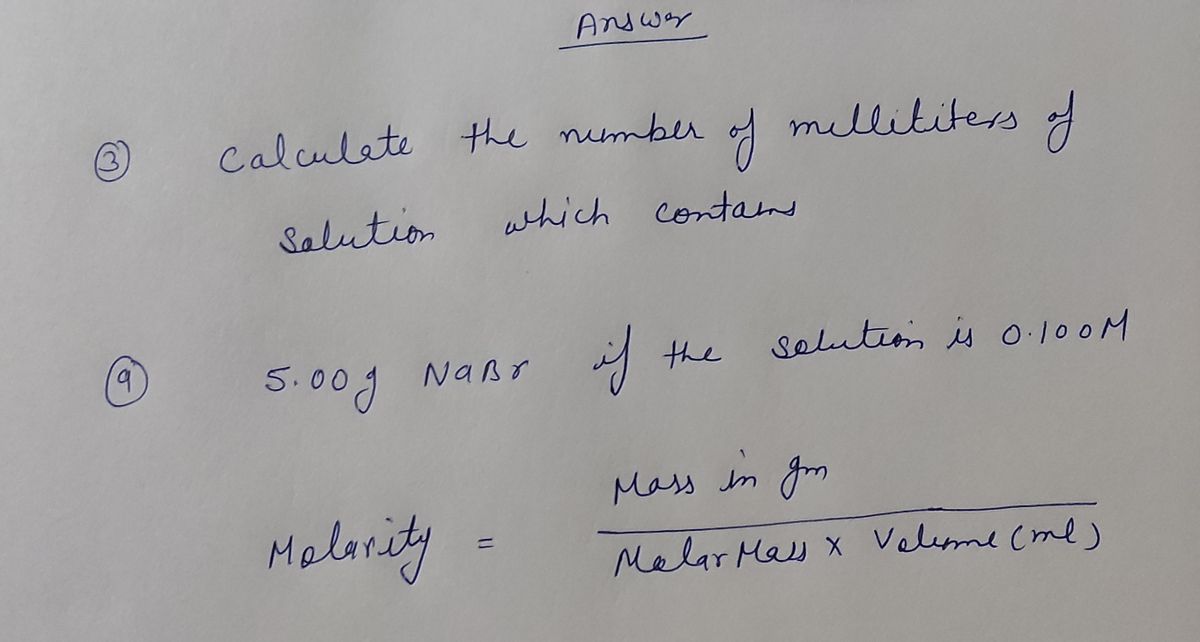 Answer
③ Calculate the number of milliliters of
Solution which contains
ⓐ 5.00g NaBr if the solution is 0.100M
Molarity = Mass in gm
Molar Mass x Volume (ml)